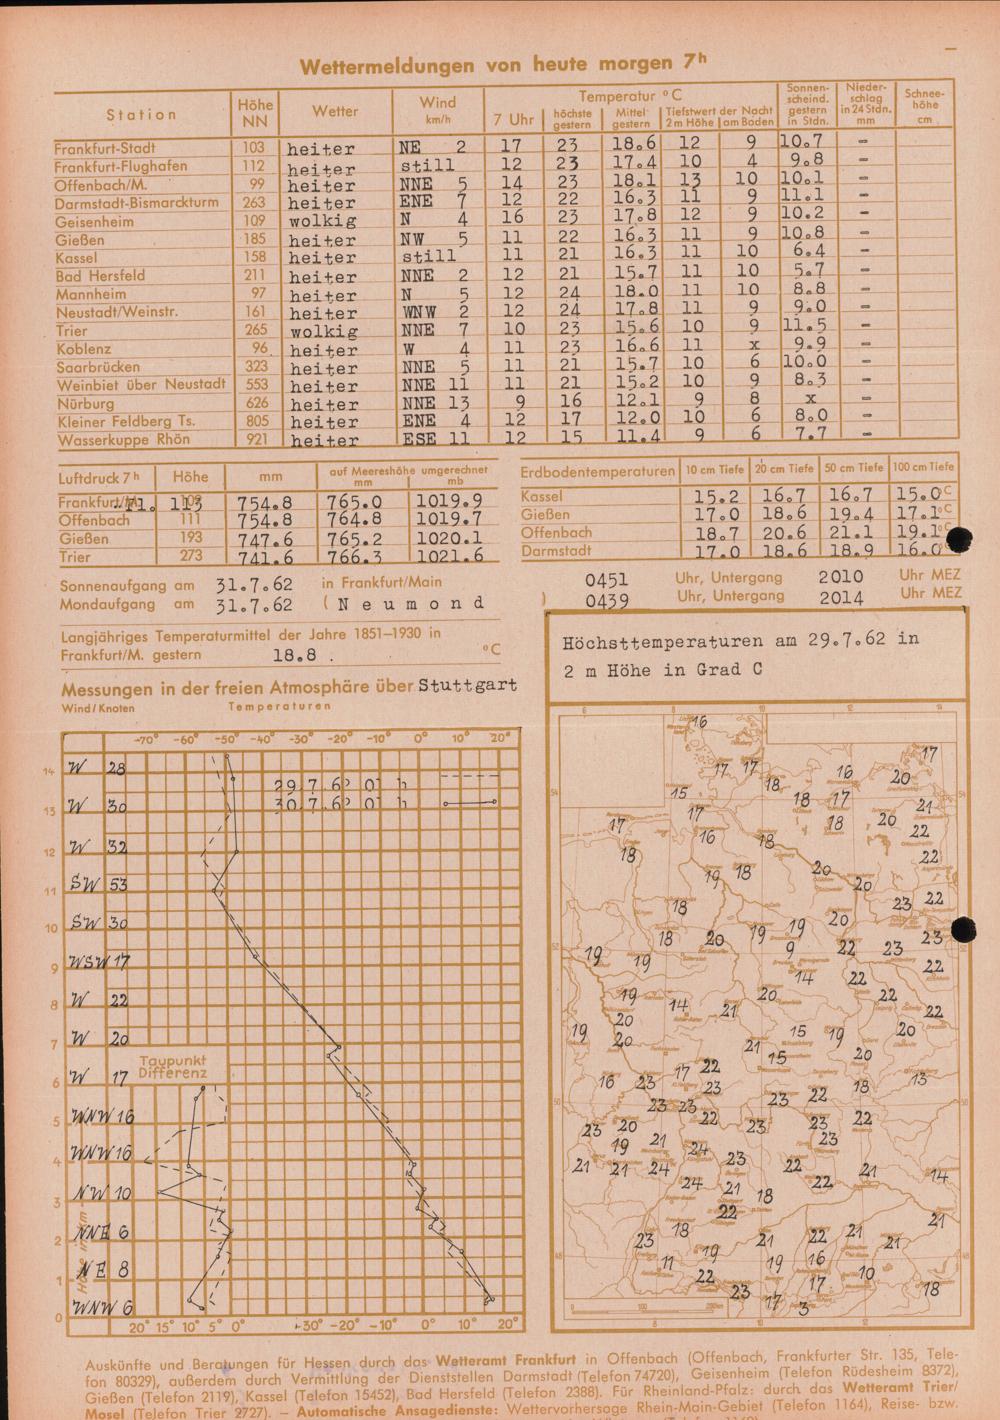 Wettermeldungen von heute morgen 7h
Station Höhe NN Wetter Wind km/h Temperatur °C Sonnen-scheind. gestern in Stdn. Nieder-schlag in 24 Stdn. mm Schnee-höhe cm
7 Uhr höchste gestern Mittel gestern Tiefstwert der Nacht 2 m Höhe am Boden
Frankfurt-Stadt 103 heiter NE 2 17 23 18.6 12 9 10.7 -
Frankfurt-Flughafen 112 heiter still 12 23 17.4 10 4 9.8 -
Offenbach/M. 99 heiter NNE 5 14 23 18.1 13 10 10.1 -
Darmstadt-Bismarckturm 263 heiter ENE 7 12 22 16.3 11 9 11.1 -
Geisenheim 109 wolkig N 4 16 23 17.8 12 9 10.2 -
Gießen 185 heiter NW 5 11 22 16.3 11 9 10.8 -
Kassel 158 heiter still 11 21 16.3 11 10 6.4 -
Bad Hersfeld 211 heiter NNE 2 12 21 15.7 11 10 5.7 -
Mannheim 97 heiter N 5 12 24 18.0 11 10 8.8 -
Neustadt/Weinstr. 161 heiter WNW 2 12 24 17.8 11 9 9.0 -
Trier 265 wolkig NNE 7 10 23 15.6 10 9 11.5 -
Koblenz 96 heiter W 4 11 23 16.6 11 x 9.9 -
Saarbrücken 323 heiter NNE 5 11 21 15.7 10 6 10.0 -
Weinbiet über Neustadt 553 heiter NNE 11 11 21 15.2 10 9 8.3 -
Nürburg 626 heiter NNE 13 9 16 12.1 9 8 x -
Kleiner Feldberg Ts. 805 heiter ENE 4 12 17 12.0 10 6 8.0 -
Wasserkuppe Rhön 921 heiter ESE 11 12 15 11.4 9 6 7.7 -
Luftdruck 7h Höhe mm auf Meereshöhe umgerechnet mm mb
Frankfurt/M. 113 754.8 765.0 1019.9
Offenbach 111 754.8 764.8 1019.7
Gießen 193 747.6 765.2 1020.1
Trier 273 741.6 766.3 1021.6
Erdbodentemperaturen 10 cm Tiefe 20 cm Tiefe 50 cm Tiefe 100 cm Tiefe
Kassel 15.2 16.7 16.7 15.0°C
Gießen 17.0 18.6 19.4 17.1°C
Offenbach 18.7 20.6 21.1 19.1°C
Darmstadt 17.0 18.6 18.9 16.0°C
Sonnenaufgang am 31.7.62 in Frankfurt/Main 0451 Uhr, Untergang 2010 Uhr MEZ
Mondaufgang am 31.7.62 (Neumond) 0439 Uhr, Untergang 2014 Uhr MEZ
Langjähriges Temperaturmittel der Jahre 1851–1930 in
Frankfurt/M. gestern 18.8 . °C
Messungen in der freien Atmosphäre über Stuttgart
Wind/Knoten Temperaturen
-70° -60° -50° -40° -30° -20° -10° 0° 10° 20°
14 W 28
29.7.62 01 h
13 W 30
30.7.62 01 h
12 W 32
11 SW 53
10 SW 30
9 WSW 17
8 W 22
7 W 20
Taupunkt
Differenz
6 W 17
5 WNW 16
4 WNW 16
3 NW 10
2 NNE 6
1 NE 8
0 WNW 6
Höhe in km
20° 15° 10° 5° 0° -30° -20° -10° 0° 10° 20°
Höchsttemperaturen am 29.7.62 in
2 m Höhe in Grad C
6 8 10 12 14
16
17 17 18 16 20 17
15 18 17 21
17 17 16 18 18 20 22
18 19 18 20 20 22
18 20 23 22
18 20 19 19 9 22 23 23
19 19 14 22 22
19 14 21 20 22 22
19 20 20 15 19 20
21 15 20
16 23 17 22 23 22 18 13
23 23 22 23 23 22
23 20 19 21 24 23 23
21 21 24 24 23 22 22 21 14
21 22 18
23 18 19 21 22 21 21 21
11 22 23 19 16 17 10 18
17 3
Auskünfte und Beratungen für Hessen durch das Wetteramt Frankfurt in Offenbach (Offenbach, Frankfurter Str. 135, Tele-
fon 80329), außerdem durch Vermittlung der Dienststellen Darmstadt (Telefon 74720), Geisenheim (Telefon Rüdesheim 8372),
Gießen (Telefon 2119), Kassel (Telefon 15452), Bad Hersfeld (Telefon 2388). Für Rheinland-Pfalz: durch das Wetteramt Trier/
Mosel (Telefon Trier 2727). – Automatische Ansagedienste: Wettervorhersage Rhein-Main-Gebiet (Telefon 1164), Reise- bzw.